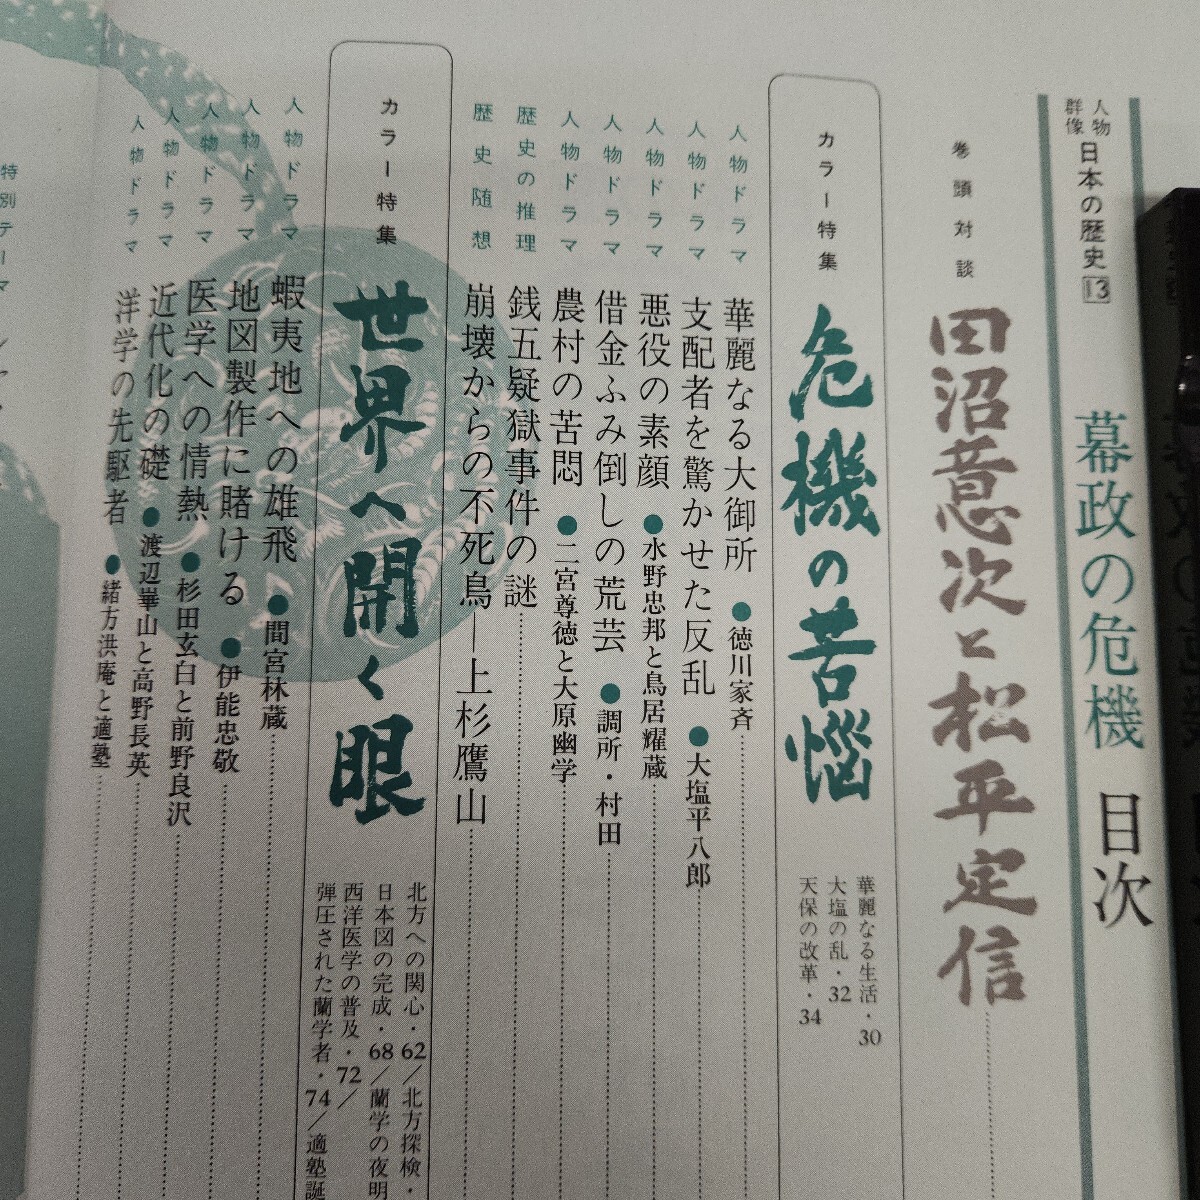 人物群像 日本の歴史 13
幕政の危機 目次
巻頭対談
田沼意次と松平定信
カラー特集
危機の苦悩
華麗なる生活・30
大塩の乱・32
天保の改革・34
人物ドラマ 華麗なる大御所 ●徳川家斉
人物ドラマ 支配者を驚かせた反乱 ●大塩平八郎
人物ドラマ 悪役の素顔 ●水野忠邦と鳥居耀蔵
人物ドラマ 借金ふみ倒しの荒芸 ●調所・村田
人物ドラマ 農村の苦悶 ●二宮尊徳と大原幽学
歴史の推理 銭五疑獄事件の謎
歴史随想 崩壊からの不死鳥―上杉鷹山
カラー特集
世界へ開く眼
北方への関心・62/北方探検・
日本図の完成・68/蘭学の夜明
西洋医学の普及・72/
弾圧された蘭学者・74/適塾誕
人物ドラマ 蝦夷地への雄飛 ●間宮林蔵
人物ドラマ 地図製作に賭ける ●伊能忠敬
人物ドラマ 医学への情熱 ●杉田玄白と前野良沢
人物ドラマ 近代化の礎 ●渡辺崋山と高野長英
人物ドラマ 洋学の先駆者 ●緒方洪庵と適塾
特別テーマ